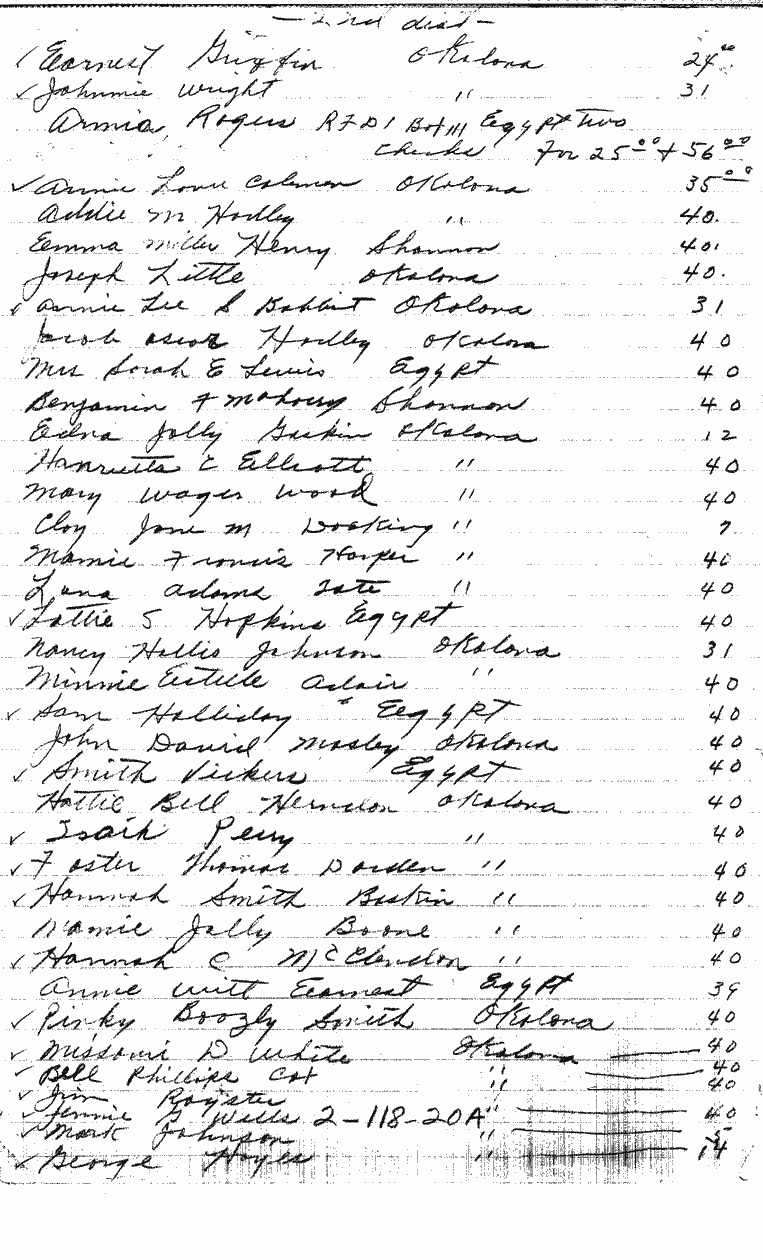 — 2nd dist —
✓ Earnest Griffin Okolona 24⁰⁰
✓ Johnnie Wright " 31
Armia, Rogers RFD1 Box 111 Egypt Two
checks For 25⁰⁰ + 56⁰⁰
✓ Annie Louie Colemen Okolona 35⁰⁰
Addie M Hodley " 40.
Eemma Miller Henry Shannon 40.
Joseph Little Okolona 40.
✓ Annie Lee S Babbit Okolona 31
Jacob Oscar Hodley Okolona 40
Mrs Sorah E Lewis Egypt 40
Benjamin F Mahorry Shannon 40
Edna Jolly Gaskin Okolona 12
Hanrietta C Elliott " 40
Mary Wages Wood " 40
Cloy Jane M Dosking " 7
Mamie Francis Harper " 40
Lana Adams Tate " 40
✓ Lottie S Hopkins Egypt 40
Nancy Hollis Johnson Okolona 31
Minnie Estelle Adair " 40
✓ Sam Holliday Egypt 40
John David Mosley Okolona 40
✓ Smith Vickers Egypt 40
Hattie Bell Herndon Okolona 40
✓ Isaih Perry " 40
✓ Foster Thomas Dorden " 40
✓ Hannah Smith Baskin " 40
Mamie Jolly Boone " 40
✓ Hannah C McClendon " 40
Annie Witt Earnest Egypt 39
✓ Pinky Boozly Smith Okolona 40
✓ Missouri D White Okolona — 40
✓ Bell Phillips Cox " — 40
✓ Jim Royster " — 40
✓ Jennie G Wells 2-118-20A " — 40
✓ Mark Johnson " —
✓ George Hoyes " — 14